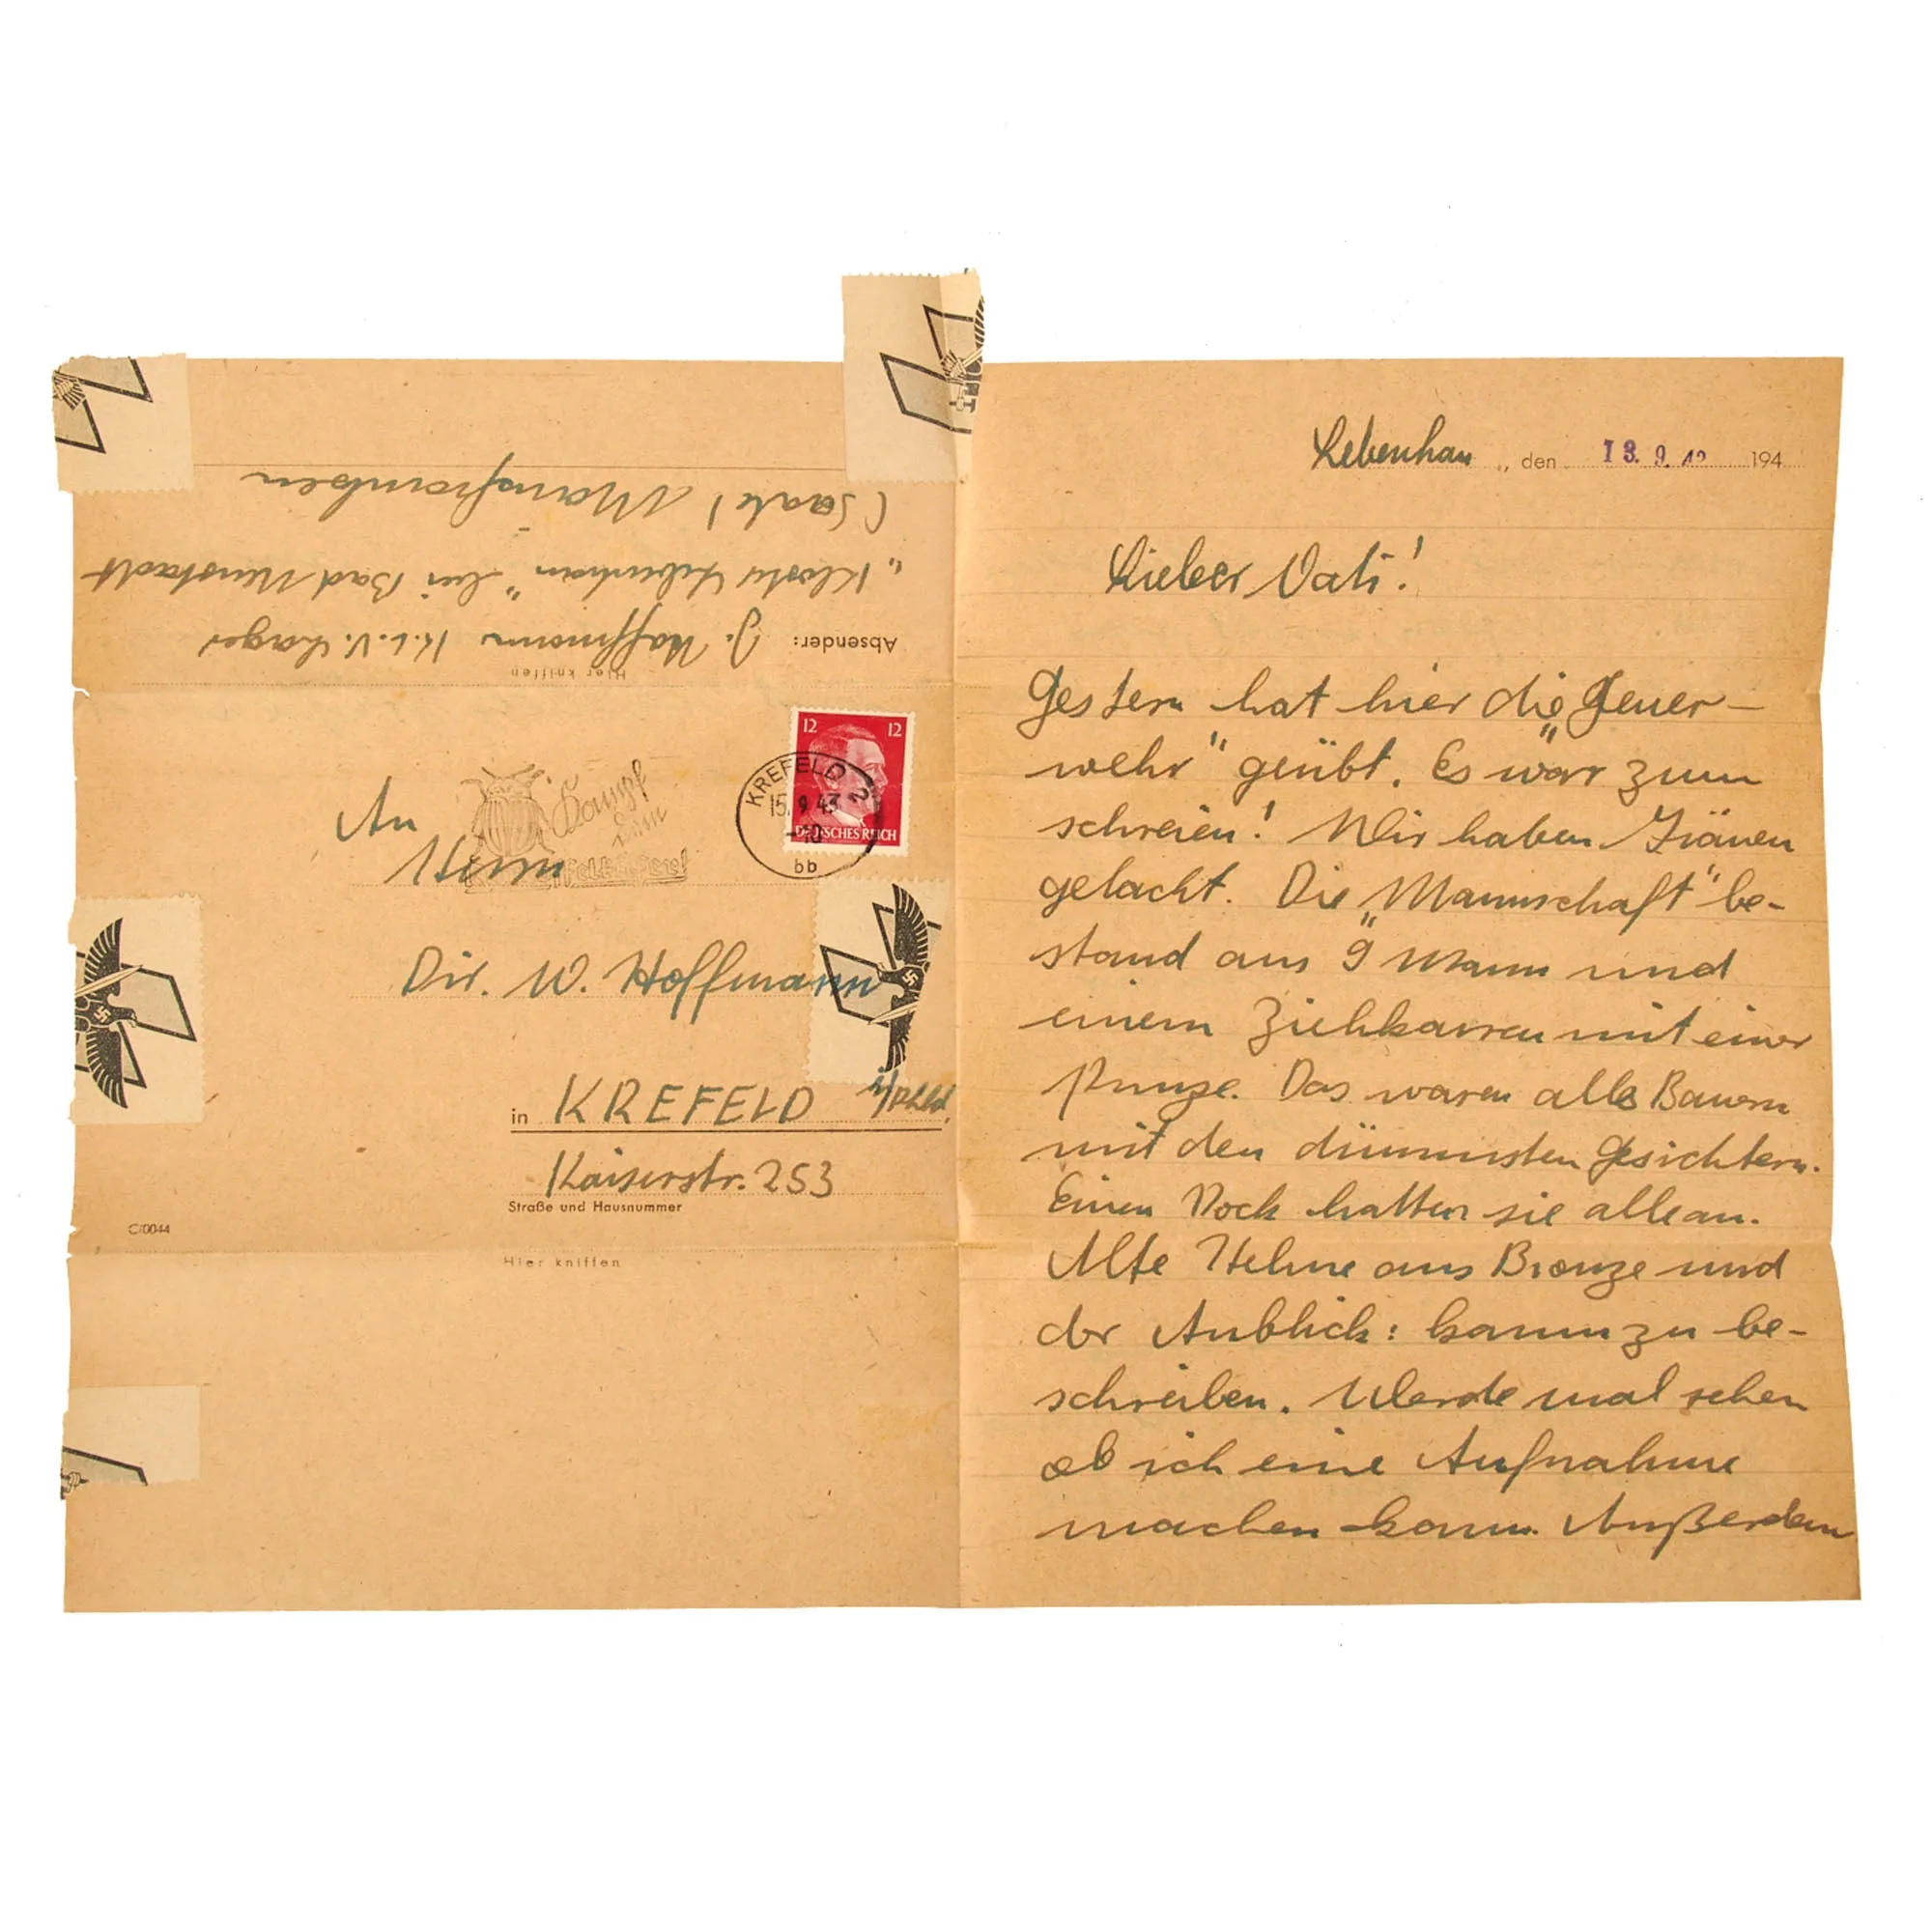 Absender: J. Hoffmann K.L.V. Lager
"Kloster Lebenhan" bei Bad Neustadt
(Saale) Mainfranken
Hier kniffen
12 12
DEUTSCHES REICH
KREFELD 2
15.9.43
-10
bb
Kampf
dem
Kartoffelkäfer!
An
Herrn
Dir. W. Hoffmann
in KREFELD i/Rhld.
Kaiserstr. 253
Straße und Hausnummer
C/0044
Hier kniffen
Lebenhan, den 13. 9. 42 194
Lieber Vati!
Gestern hat hier die „Feuer-
wehr" geübt. Es war zum
schreien! Wir haben Tränen
gelacht. Die „Mannschaft" be-
stand aus 9 Mann und
einem Ziehkarren mit einer
Das waren alle Bauern
mit den dümmsten Gesichtern.
Einen Rock hatten sie alle an.
Alte Helme aus Bronze und
der Anblick: kaum zu be-
schreiben. Werde mal sehen
ob ich eine Aufnahme
machen kann. Außerdem